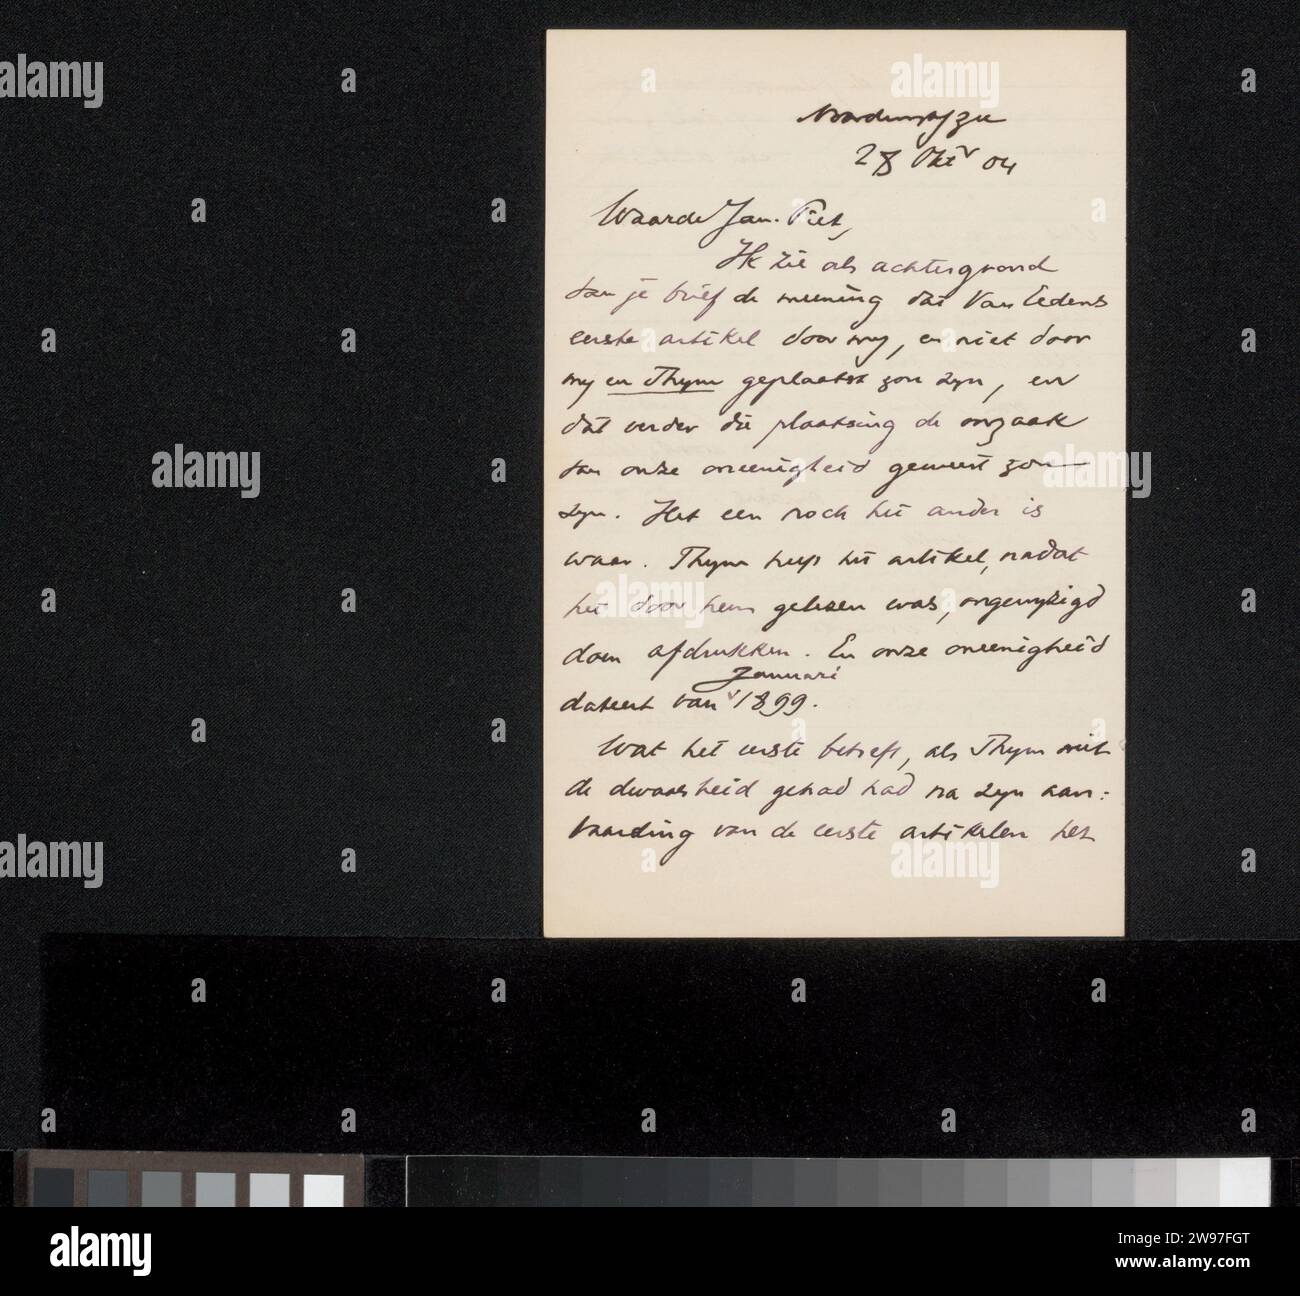 Noordwijk/zee
28 Okt 04
Waarde Jan Piet,
Ik zie als achtergrond
van je brief de meening dat Van Eedens
eerste artikel door my, en niet door
my en Thym geplaatst zou zyn, en
dat verder die plaatsing de oorzaak
van onze oneenigheid geweest zou
zyn. Het een noch het ander is
waar. Thym heeft het artikel, nadat
het door hem gelezen was, ongewyzigd
doen afdrukken. En onze oneenigheid
Januari
dateert van 1899.
Wat het eerste betreft, als Thym niet
de dwaasheid gehad had na zyn aan:
vaarding van de eerste artikelen het
alamy
Image ID: 2W97FGT
www.alamy.com